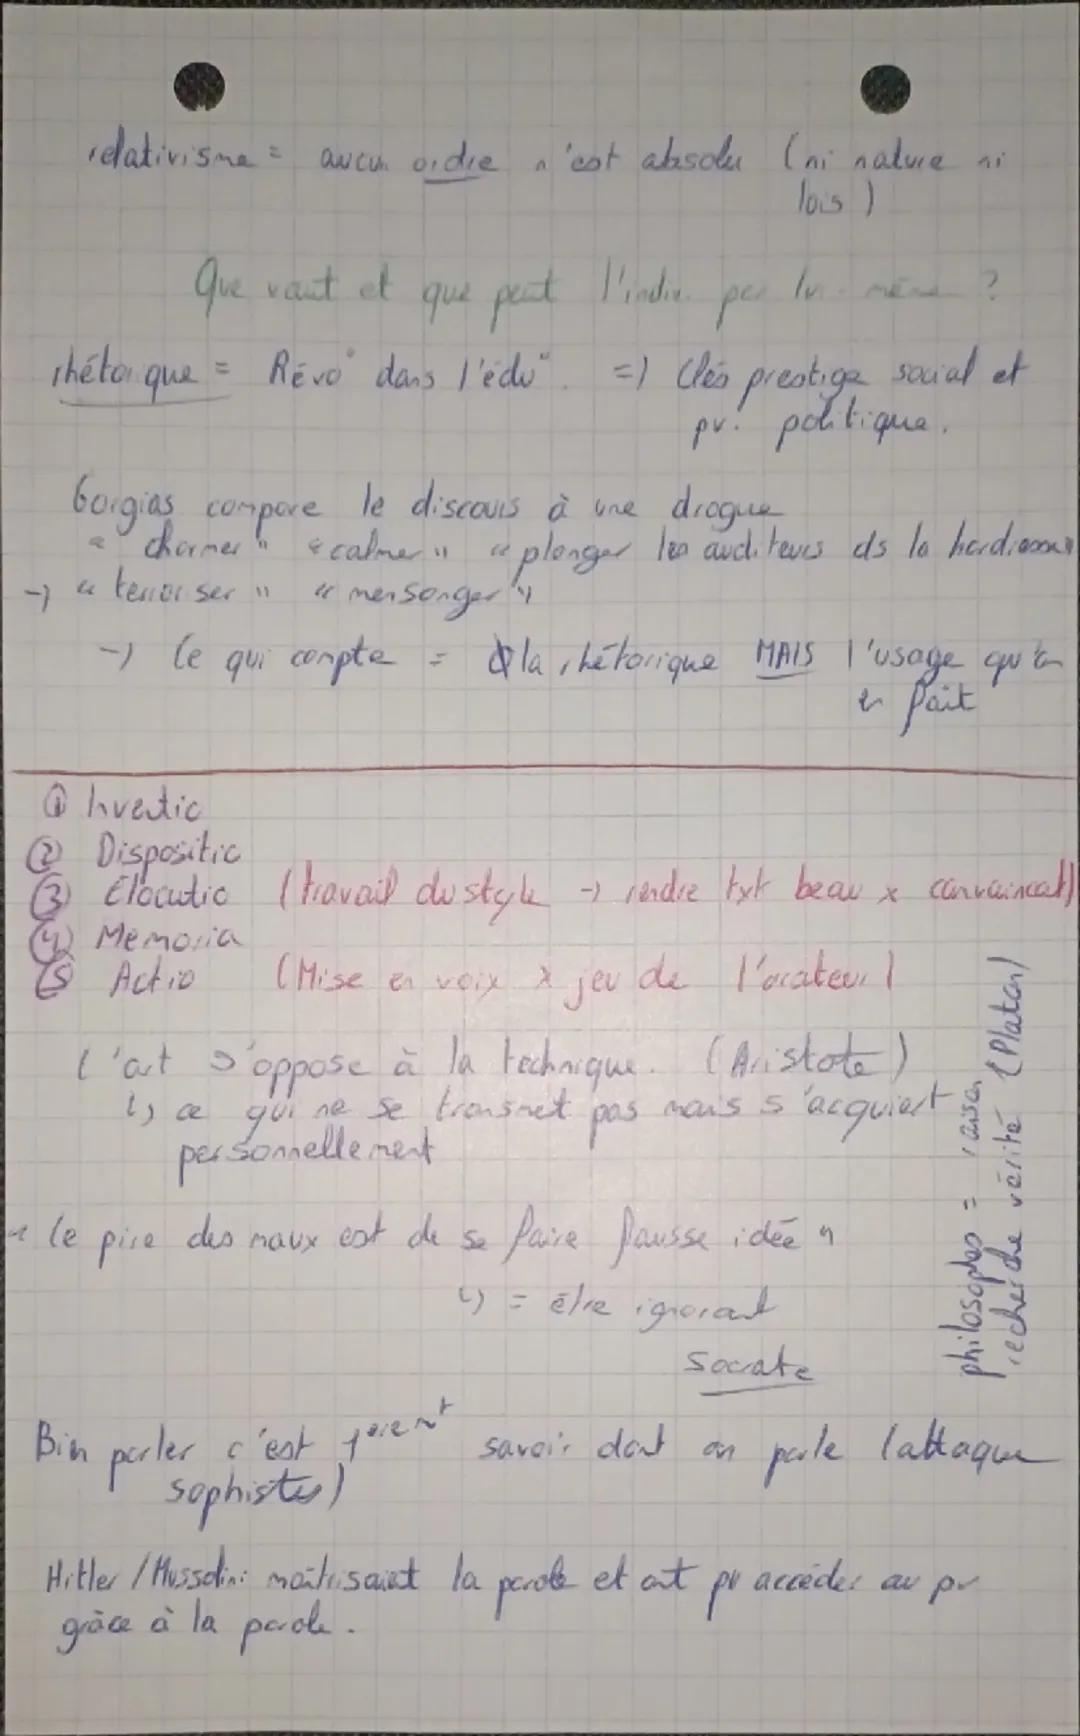 relativisme = aucun ordre n'est absolu (ni nature ni
lois)
Que vaut et que peut l'indiv. par lui-même ?
rhétorique = Révo° dans l'édu°. => Clés prestige social et
pv. politique.
Gorgias compare le discours à une drogue
"charmer" "calmer" "plonger les auditeurs ds la hardiesse"
-> "terroriser" "mensonger"
-> Ce qui compte = Ø la rhétorique MAIS l'usage qu'on
en fait
① Inventio
② Dispositio
③ Elocutio (travail du style -> rendre txt beau x convaincant)
④ Memoria
⑤ Actio (Mise en voix x jeu de l'orateur)
L'art s'oppose à la technique. (Aristote)
↳ ce qui ne se transmet pas mais s'acquiert
personnellement
"Le pire des maux est de se faire fausse idée"
↳ = être ignorant
Socrate
philosophes = raison
recherche vérité (Platon)
Bien parler c'est 1èrement savoir dont on parle (attaque
sophistes)
Hitler / Mussolini maîtrisaient la parole et ont pu accéder au pv
grâce à la parole.